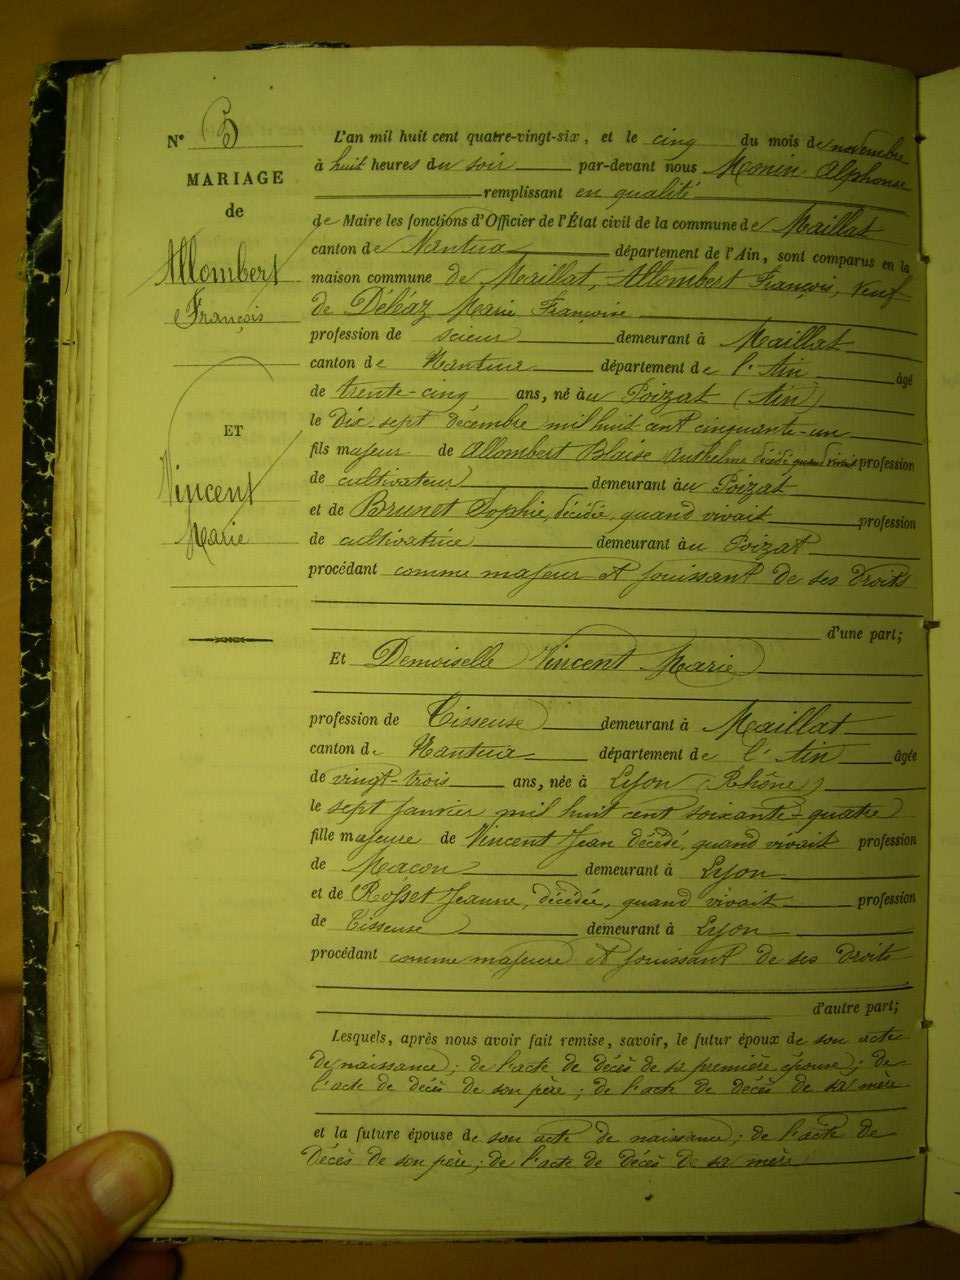 N° 5
MARIAGE
de
Allombert
François
ET
Vincent
Marie
L'an mil huit cent quatre-vingt-six, et le cinq du mois de novembre
à huit heures du soir par-devant nous Monin Alphonse
remplissant en qualité
de Maire les fonctions d'Officier de l'État civil de la commune de Maillat
canton de Nantua département de l'Ain, sont comparus en la
maison commune de Maillat, Allombert François, veuf
de Déléaz Marie Françoise
profession de scieur demeurant à Maillat
canton de Nantua département de l'Ain âgé
de trente-cinq ans, né au Poizat (Ain)
le Dix-sept décembre mil huit cent cinquante-un
fils majeur de Allombert Blaise Anthelme décédé quand vivait profession
de cultivateur demeurant au Poizat
et de Brunet Sophie, décédée, quand vivait profession
de cultivatrice demeurant au Poizat
procédant comme majeur et jouissant de ses droits
d'une part;
Et Demoiselle Vincent Marie
profession de Tisseuse demeurant à Maillat
canton de Nantua département de l'Ain âgée
de vingt-trois ans, née à Lyon (Rhône)
le sept janvier mil huit cent soixante-quatre
fille majeure de Vincent Jean décédé, quand vivait profession
de Maçon demeurant à Lyon
et de Rosset Jeanne, décédée, quand vivait profession
de Tisseuse demeurant à Lyon
procédant comme majeure et jouissant de ses droits
d'autre part;
Lesquels, après nous avoir fait remise, savoir, le futur époux de son acte
de naissance; de l'acte de décès de sa première épouse; de
l'acte de décès de son père; de l'acte de décès de sa mère
et la future épouse de son acte de naissance; de l'acte de
décès de son père; de l'acte de décès de sa mère